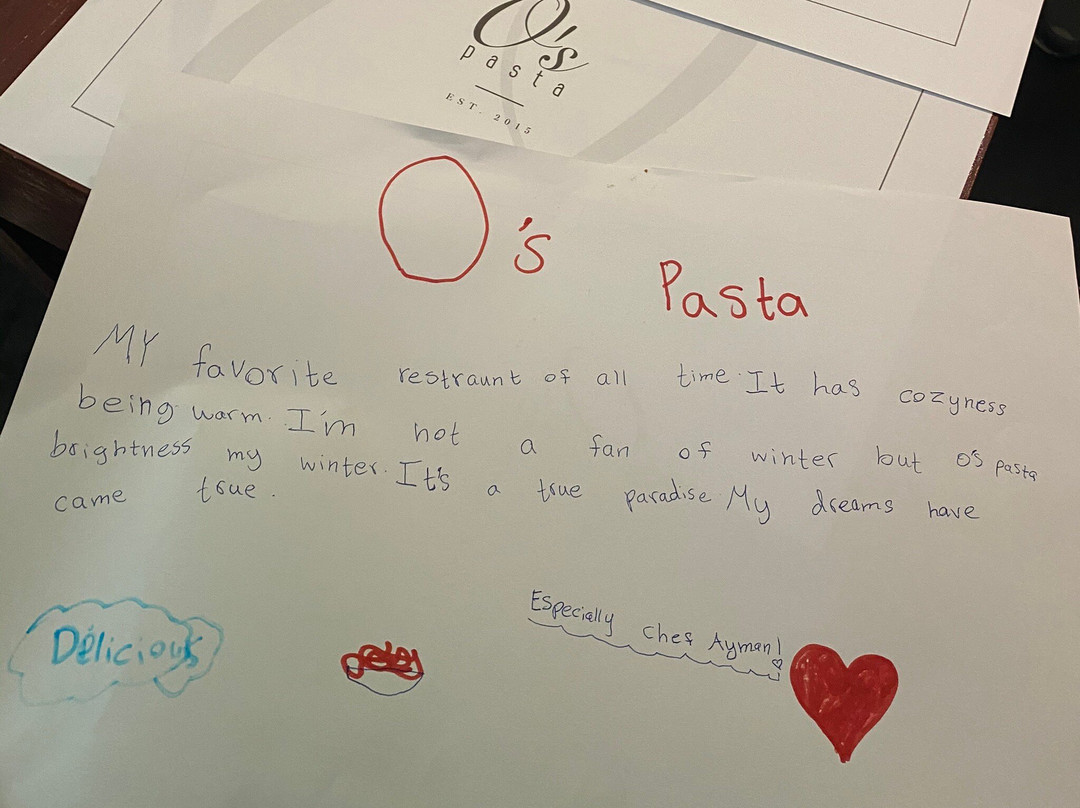 O's
pasta
EST. 2015
O's Pasta
My favorite restraunt of all time. It has cozyness
being warm. I'm not a fan of winter but O's pasta
brightness my winter. It's a true paradise. My dreams have
came true.
Délicious
Especially chef Ayman!